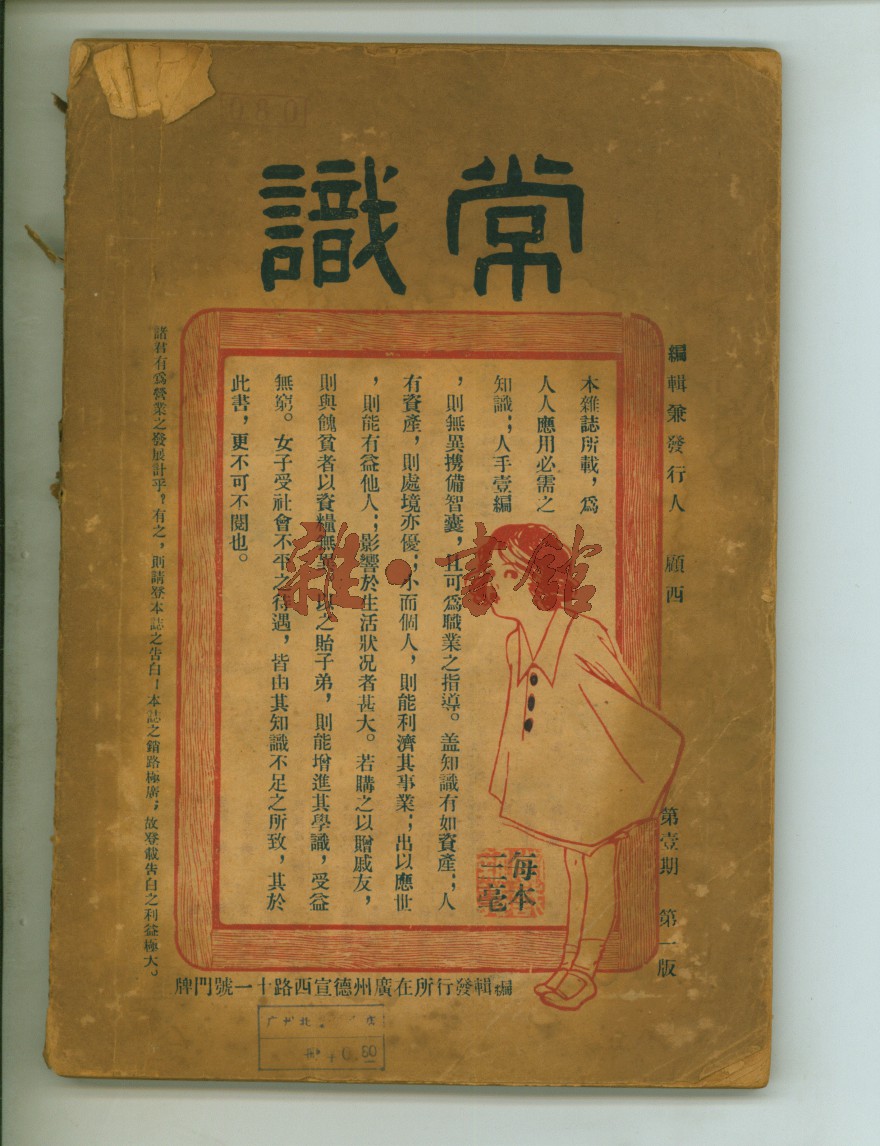 常識
編輯兼發行人　顧西
第壹期　第一版
本雜誌所載，爲
人人應用必需之
知識；人手壹編
，則無異攜備智囊，且可爲職業之指導。蓋知識有如資產；人
有資產，則處境亦優；小而個人，則能利濟其事業；出以應世
，則能有益他人；影響於生活狀况者甚大。若購之以贈戚友，
則與餽貧者以資糧無異，以之貽子弟，則能增進其學識，受益
無窮。女子受社會不平之待遇，皆由其知識不足之所致，其於
此書，更不可不閱也。
每本
三毫
諸君有爲營業之發展計乎？有之，則請登本誌之告白！本誌之銷路極廣；故登載告白之利益極大。
編輯發行所在廣州德宣西路十一號門牌
雜·書館